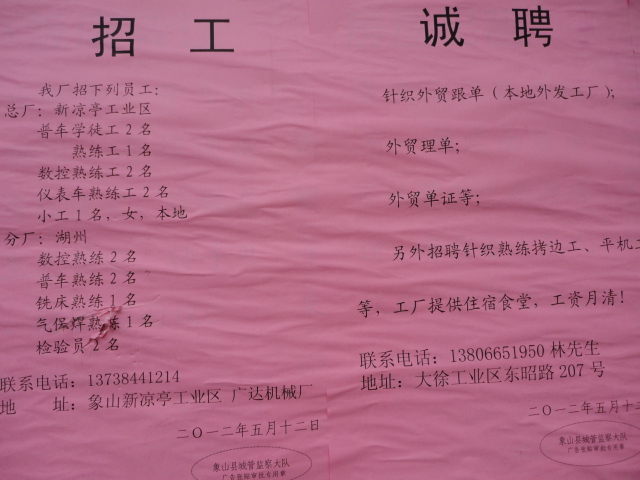 招 工
我厂招下列员工：
总厂：新凉亭工业区
普车学徒工2名
熟练工1名
数控熟练工2名
仪表车熟练工2名
小工1名，女，本地
分厂：湖州
数控熟练2名
普车熟练2名
铣床熟练1名
气保焊熟练1名
检验员2名
联系电话：13738441214
地 址：象山新凉亭工业区 广达机械厂
二〇一二年五月十二日
象山县城管监察大队
广告张贴审批专用章
诚 聘
针织外贸跟单（本地外发工厂）；
外贸理单；
外贸单证等；
另外招聘针织熟练拷边工、平机工
等，工厂提供住宿食堂，工资月清！
联系电话：13806651950 林先生
地址：大徐工业区东昭路207号
二〇一二年五月十二
象山县城管监察大队
广告张贴审批专用章